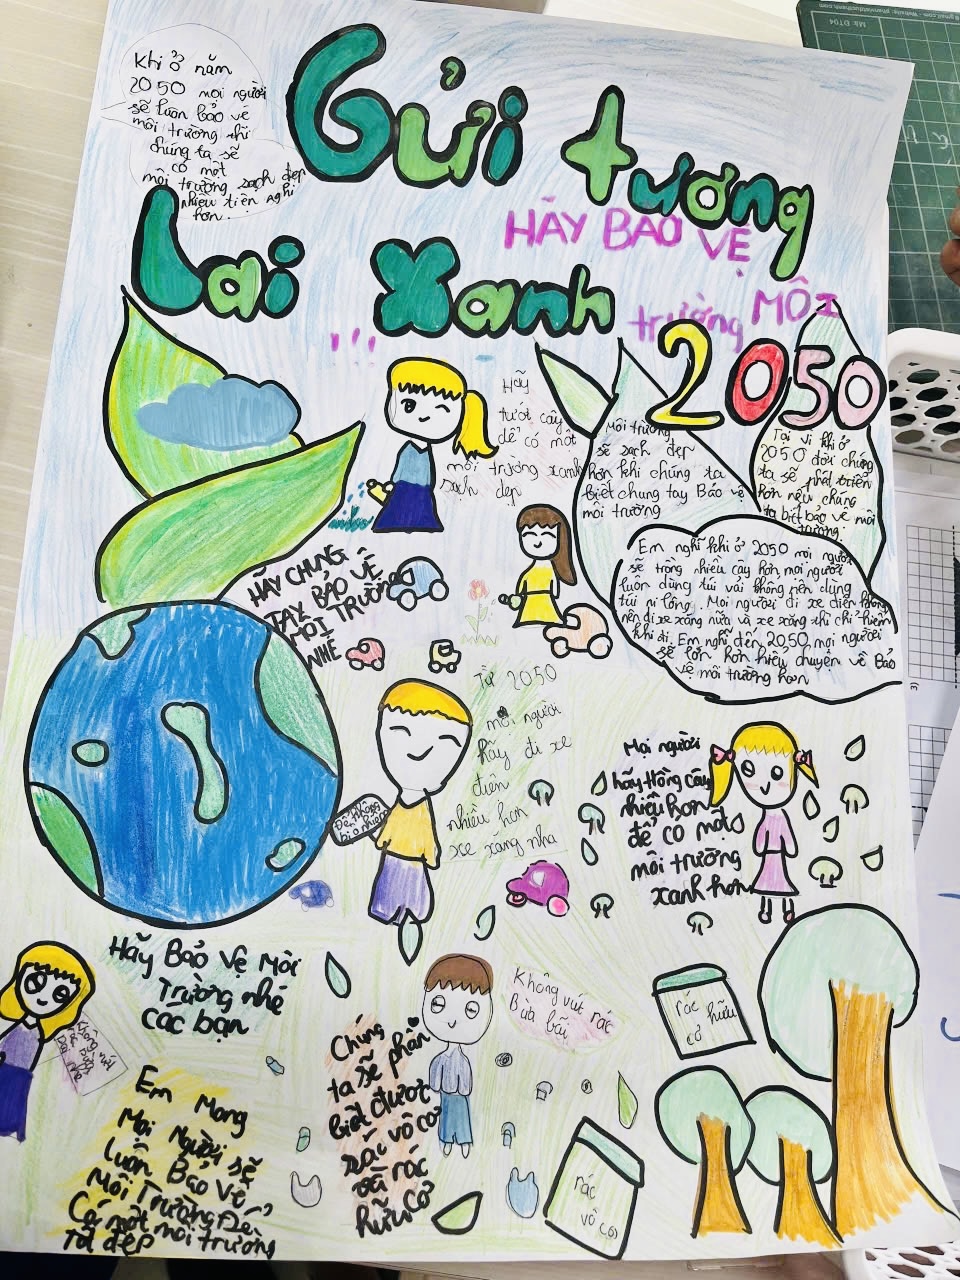 Khi ở năm
2050 mọi người
sẽ luôn bảo vệ
môi trường thì
chúng ta sẽ
có một
môi trường sạch đẹp
nhiều tiện nghi
hơn.
Gửi tương
Lai Xanh
HÃY BẢO VỆ
trường MÔI
!!!
2050
Hãy
tưới cây
để có một
môi trường xanh
sạch đẹp
Môi trường
sẽ sạch đẹp
hơn khi chúng ta
biết chung tay Bảo vệ
môi trường
Tại vì khi ở
2050 đời chúng
ta sẽ phát triển
hơn nếu chúng
ta biết bảo vệ môi
trường.
Em nghĩ khi ở 2050 mọi người
sẽ trồng nhiều cây hơn mọi người
luôn dùng túi vải không nên dùng
túi ni lông. Mọi người đi xe điện không
nên đi xe xăng nữa và xe xăng thì chỉ hiếm
khi đi. Em nghĩ đến 2050 mọi người
sẽ lớn hơn hiểu chuyện về Bảo
vệ môi trường hơn
HÃY CHUNG
TAY BẢO VỆ
MÔI TRƯỜNG
NHÉ
Từ 2050
mọi người
hãy đi xe
điện
nhiều hơn
xe xăng nha
Để không
bị ô nhiễm
Mọi người
hãy trồng cây
nhiều hơn
để có một
môi trường
xanh hơn
Hãy Bảo Vệ Môi
Trường nhé
các bạn
Không vứt
Em Mong
Mọi Người sẽ
Luôn Bảo Vệ
Môi Trường Để
Có một môi trường
Tốt đẹp
Chúng
ta sẽ phân
biệt được
rác vô cơ
và rác
hữu cơ
Không vứt rác
Bừa bãi
rác hữu
cơ
rác
vô cơ
Mã: DT04
3)